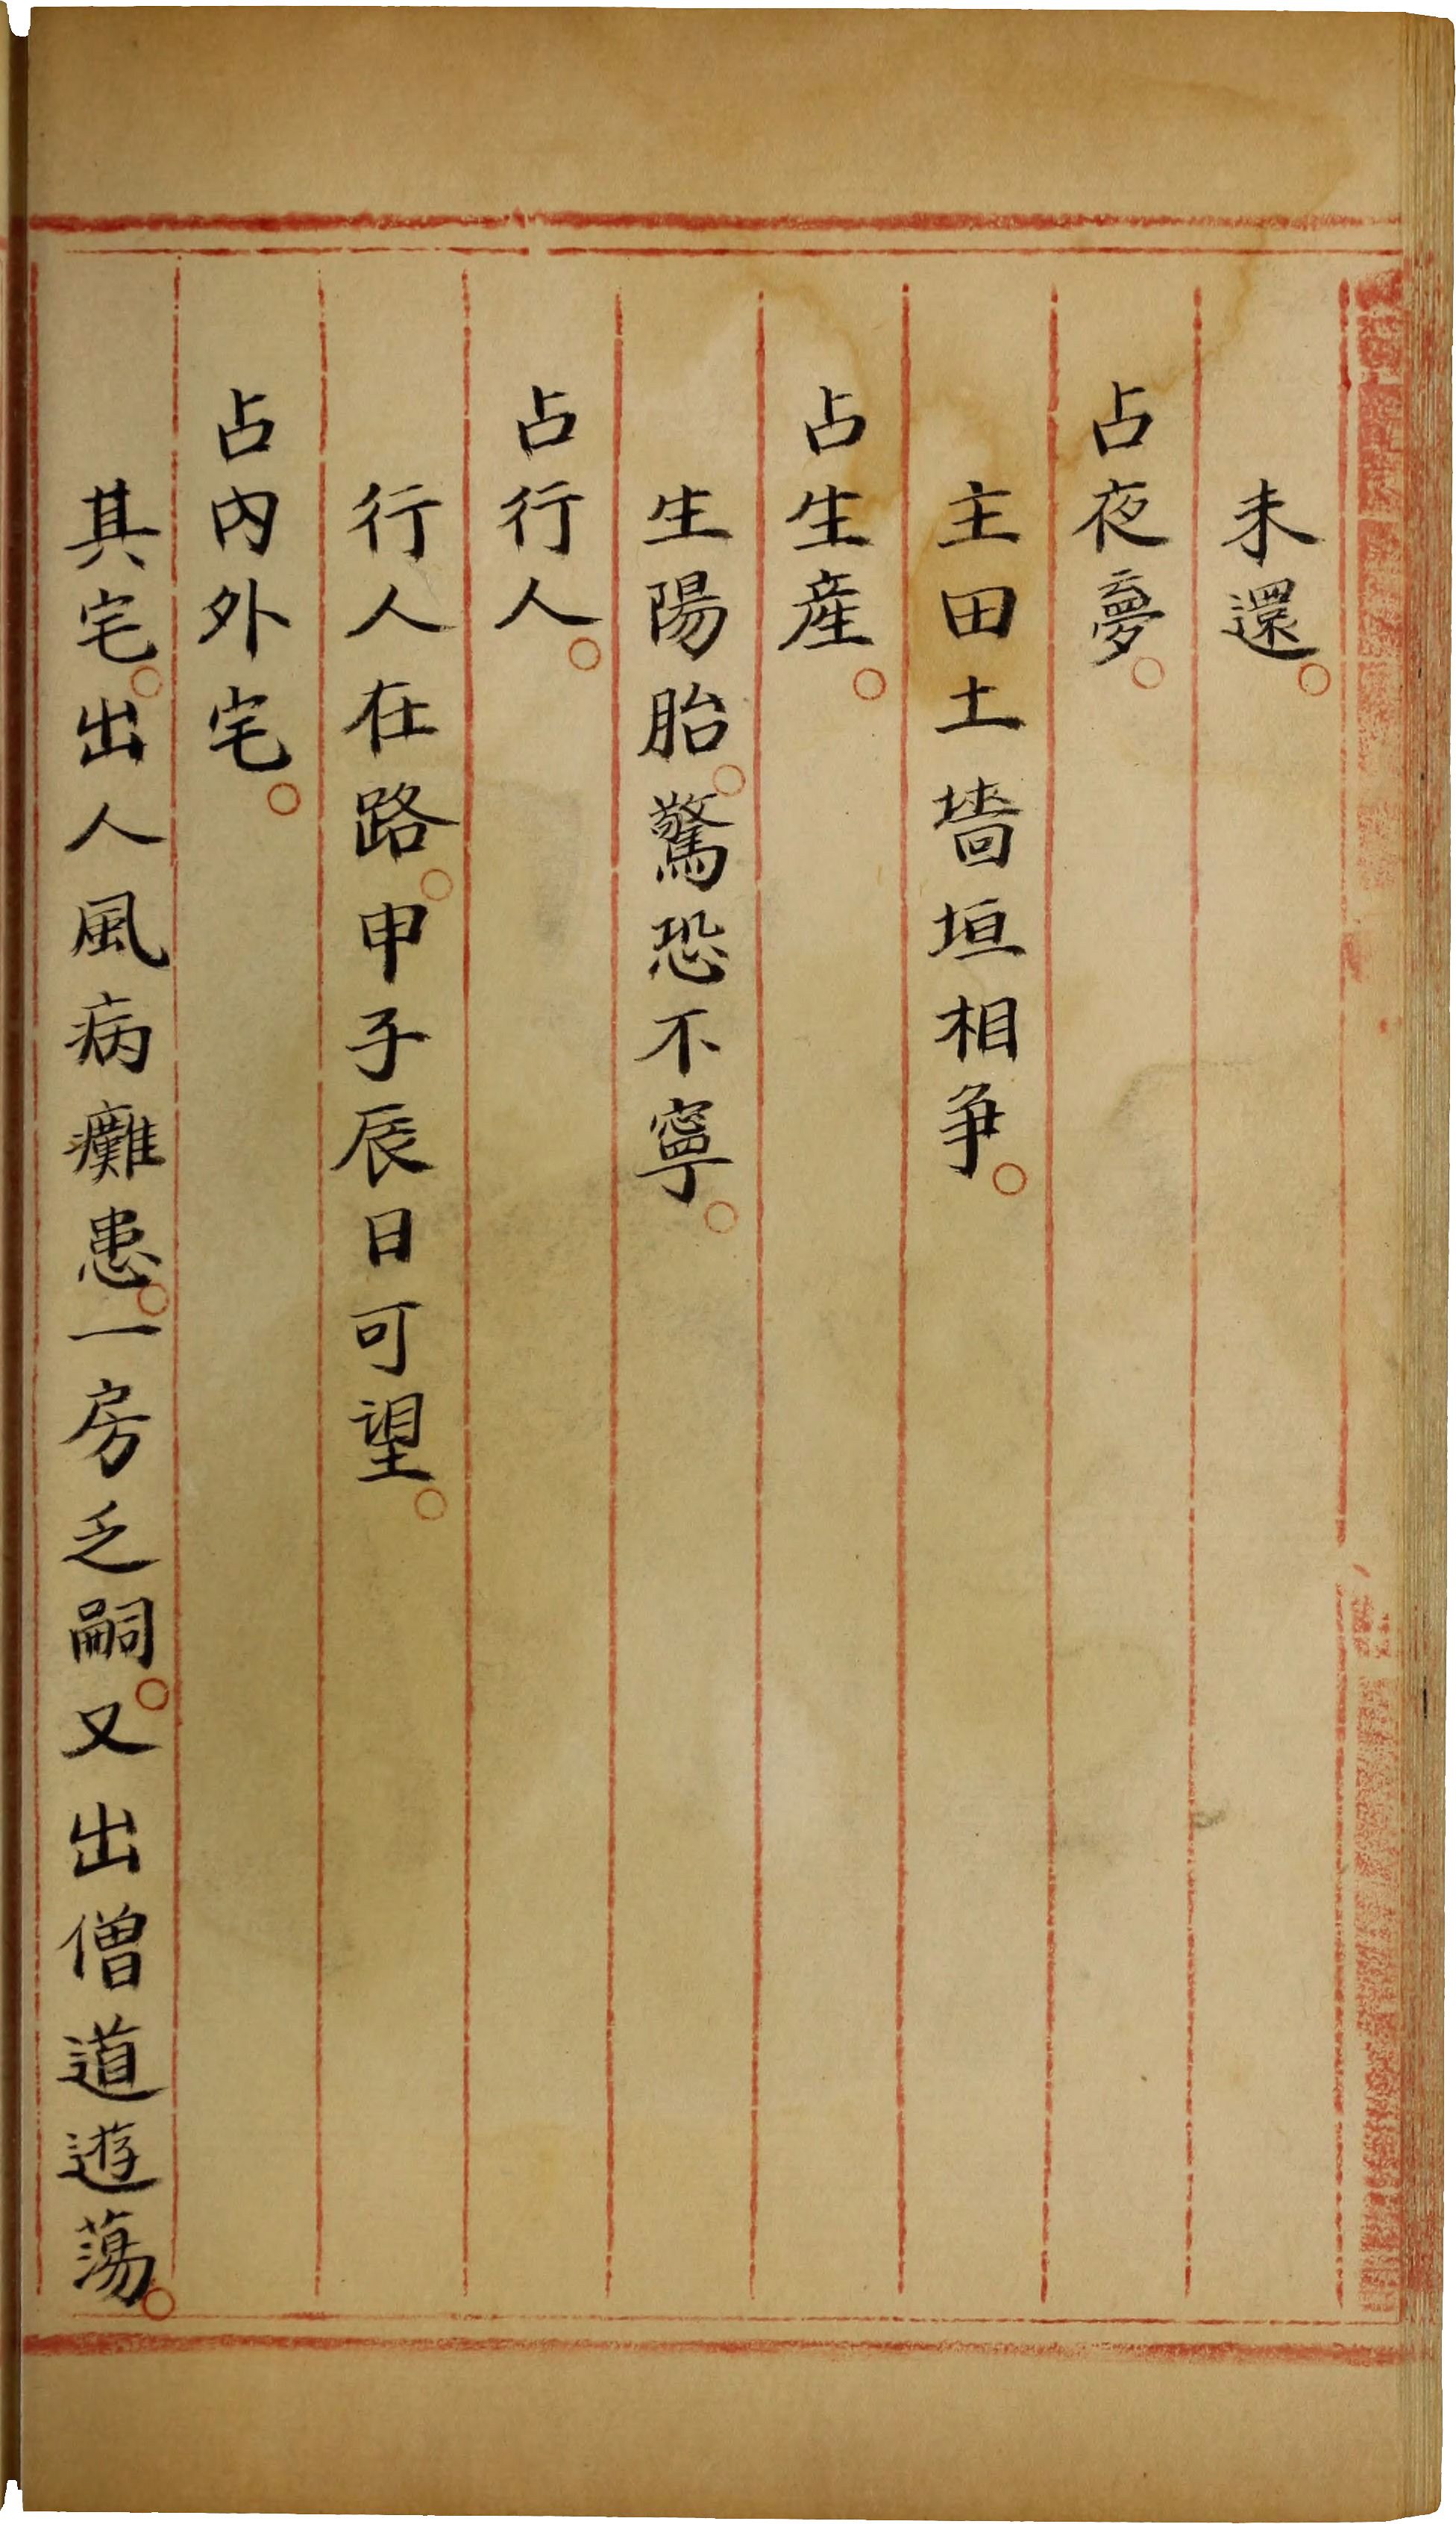 未還。
占夜夢。
主田土墻垣相爭。
占生産。
生陽胎。驚恐不寧。
占行人。
行人在路。申子辰日可望。
占內外宅。
其宅。出人風病癱患。一房乏嗣。又出僧道遊蕩。